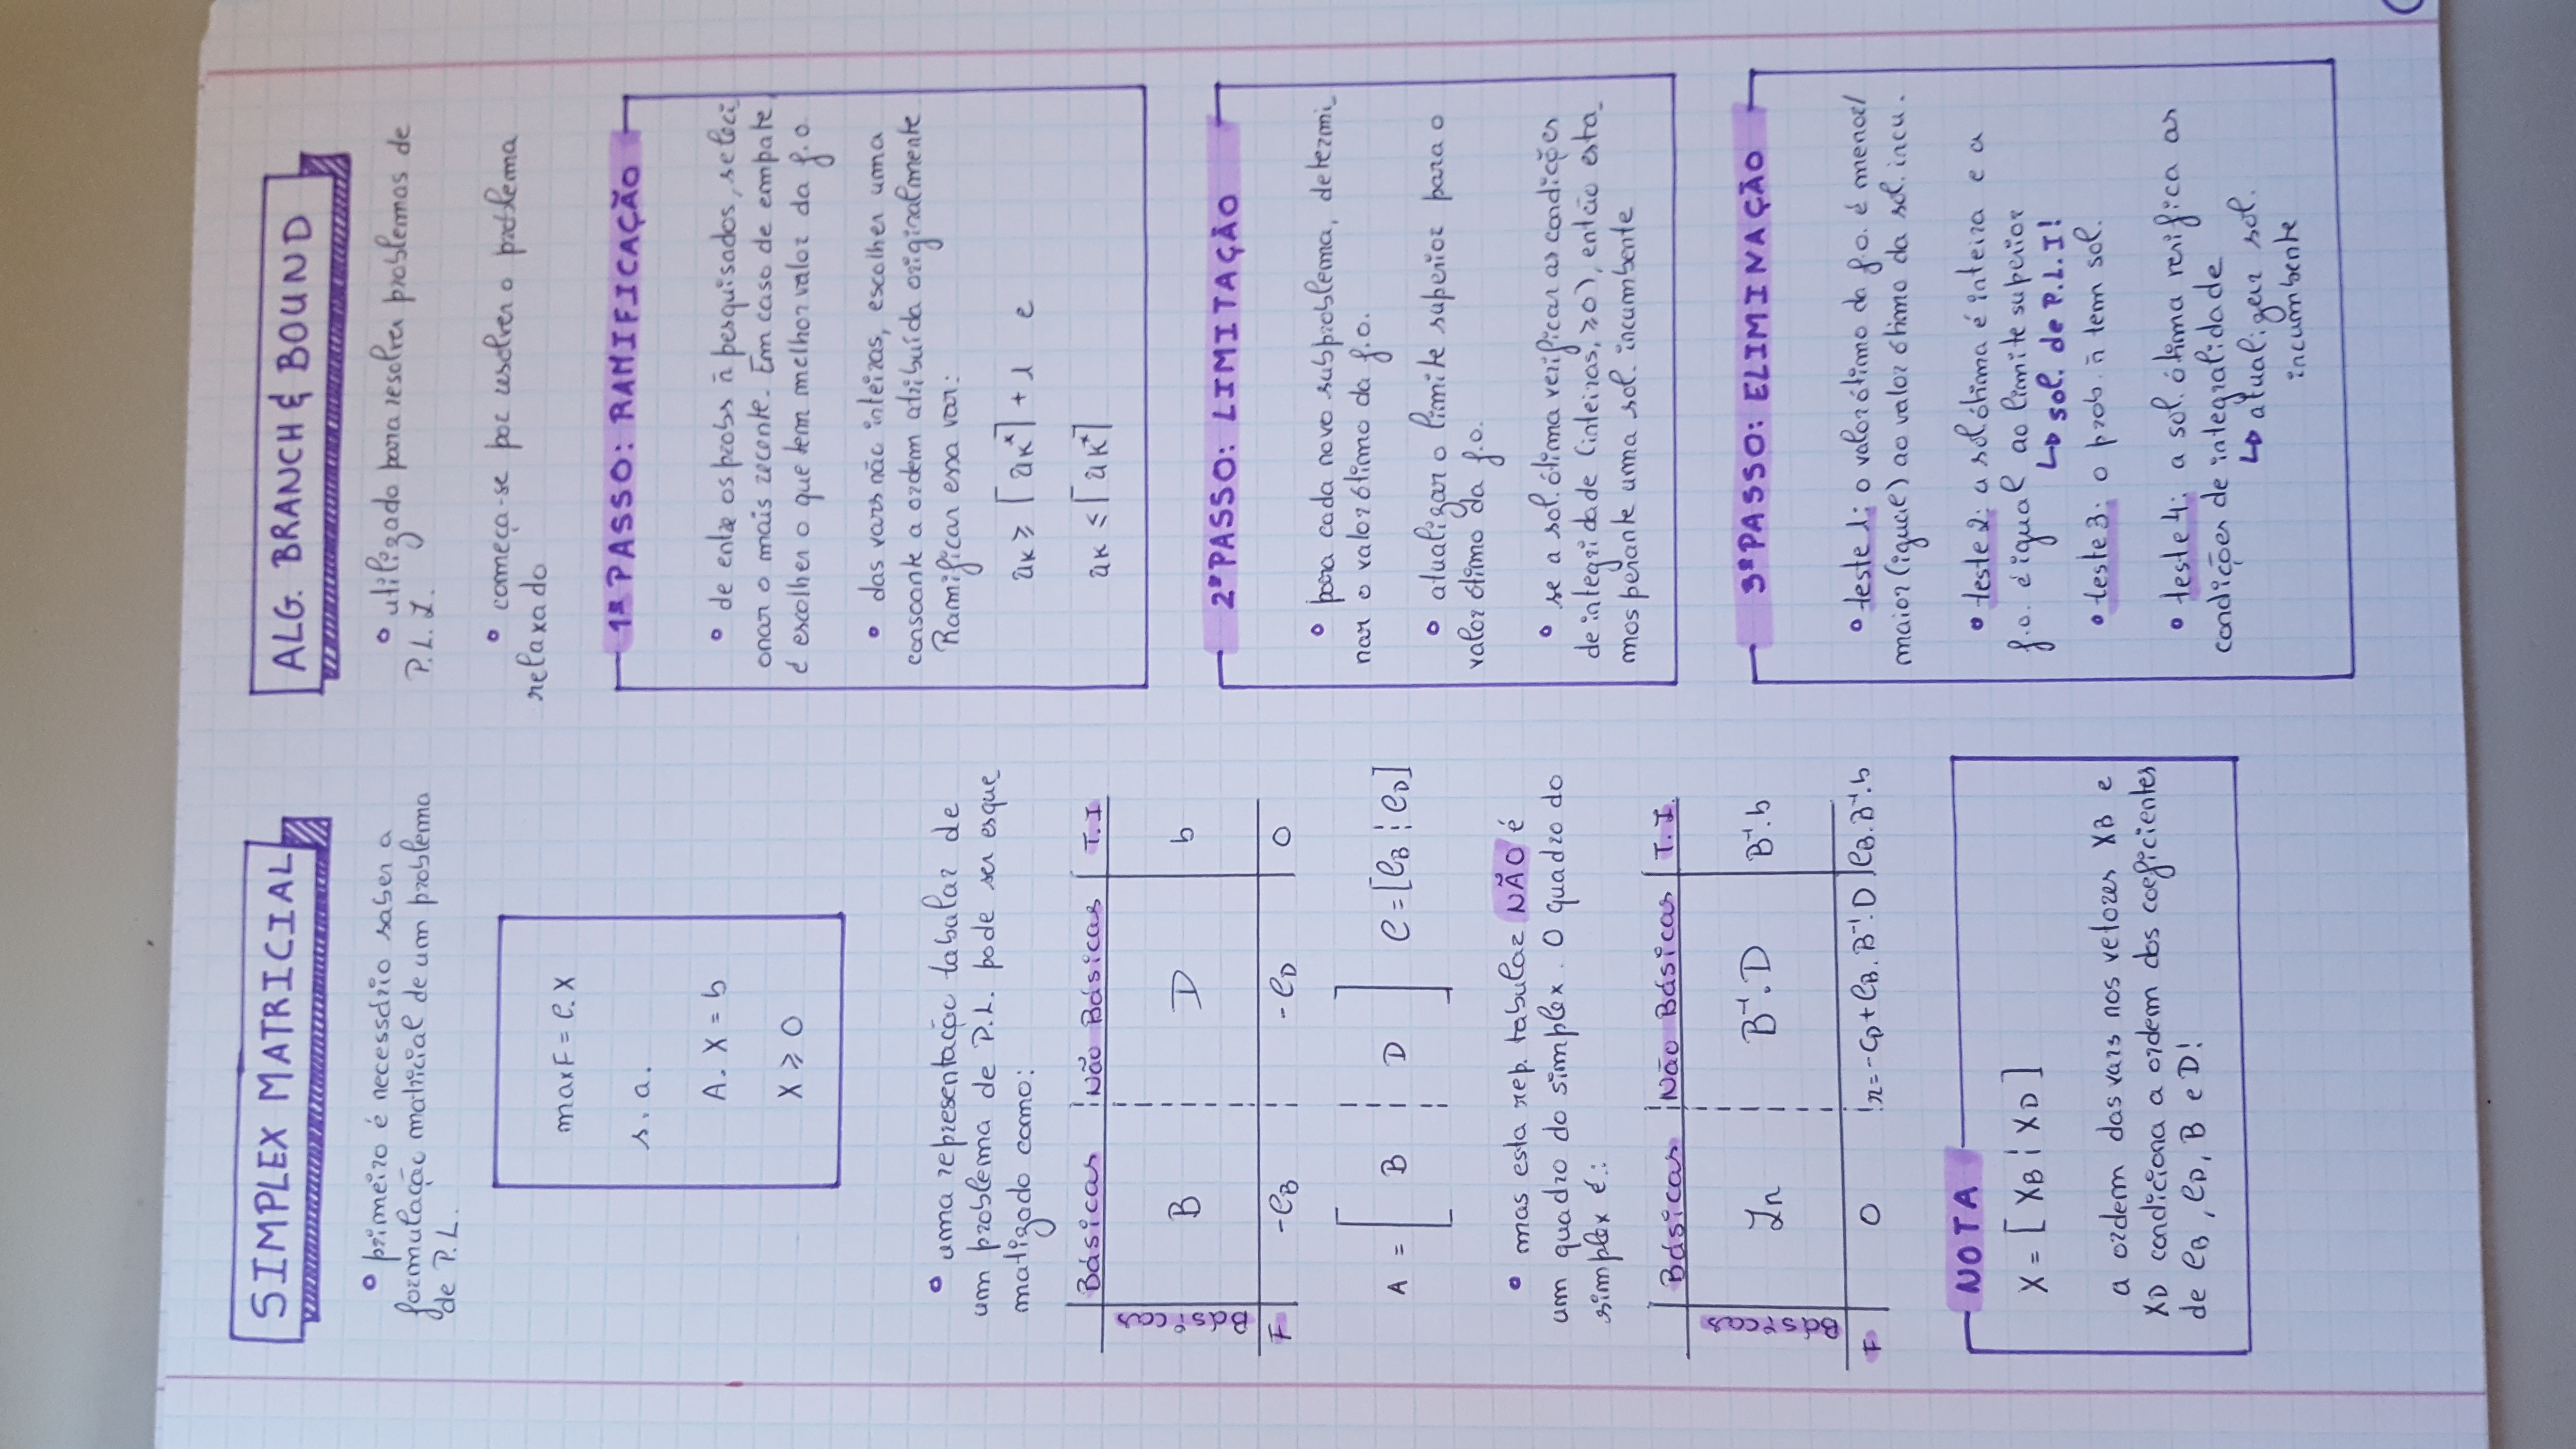 SIMPLEX MATRICIAL
• primeiro é necessário saber a
formulação matricial de um problema
de P.L.
max F = C.X
s.a.
A.X = b
X ≥ 0
• uma representação tabular de
um problema de P.L. pode ser esque
matizado como:
Básicas Não Básicas T.I
Básicas B D b
F -CB -CD 0
A = [ B D ] C = [CB CD]
• mas esta rep. tabular NÃO é
um quadro do simplex. O quadro do
simplex é:
Básicas Não Básicas T.I.
Básicas In B⁻¹.D B⁻¹.b
F 0 r=-CD+CB.B⁻¹.D CB.B⁻¹.b
NOTA
X = [ XB ¦ XD ]
a ordem das vars nos vetores XB e
XD condiciona a ordem dos coeficientes
de CB, CD, B e D!
ALG. BRANCH & BOUND
• utilizado para resolver problemas de
P.L.I.
• começa-se por resolver o problema
relaxado
1º PASSO: RAMIFICAÇÃO
• de entre os probs ñ pesquisados, seleci
onar o mais recente. Em caso de empate,
é escolher o que tem melhor valor da f.o.
• das vars não inteiras, escolher uma
consoante a ordem atribuída originalmente
Ramificar essa var:
xk ≥ ⌈xk*⌉ + 1 e
xk ≤ ⌈xk*⌉
2º PASSO: LIMITAÇÃO
• para cada novo subproblema, determi
nar o valor ótimo da f.o.
• atualizar o limite superior para o
valor ótimo da f.o.
• se a sol. ótima verificar as condições
de integridade (inteiras, ≥0), então esta
mos perante uma sol. incumbente
3º PASSO: ELIMINAÇÃO
• teste 1: o valor ótimo da f.o. é menor/
maior (igual) ao valor ótimo da sol. incu.
• teste 2: a sol. ótima é inteira e a
f.o. é igual ao limite superior
↳ sol. de P.L.I!
• teste 3: o prob. ñ tem sol.
• teste 4: a sol. ótima verifica as
condições de integralidade
↳ atualizar sol.
incumbente